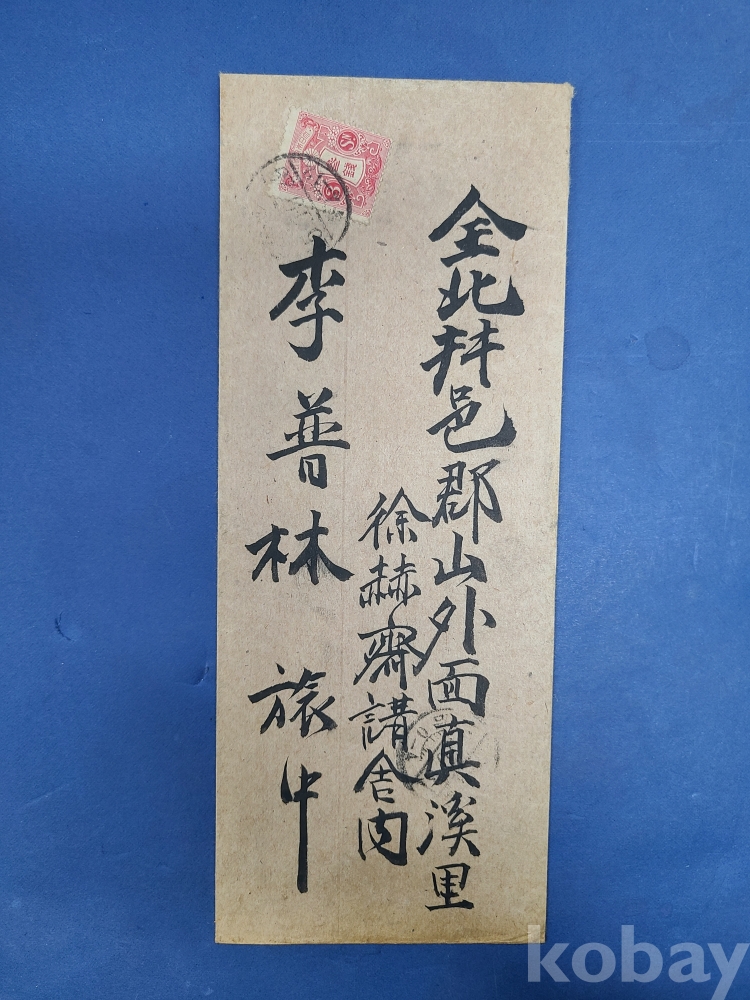 全北井邑郡山外面眞溪里
徐赫齋講舍內
李普林 旅中
kobay